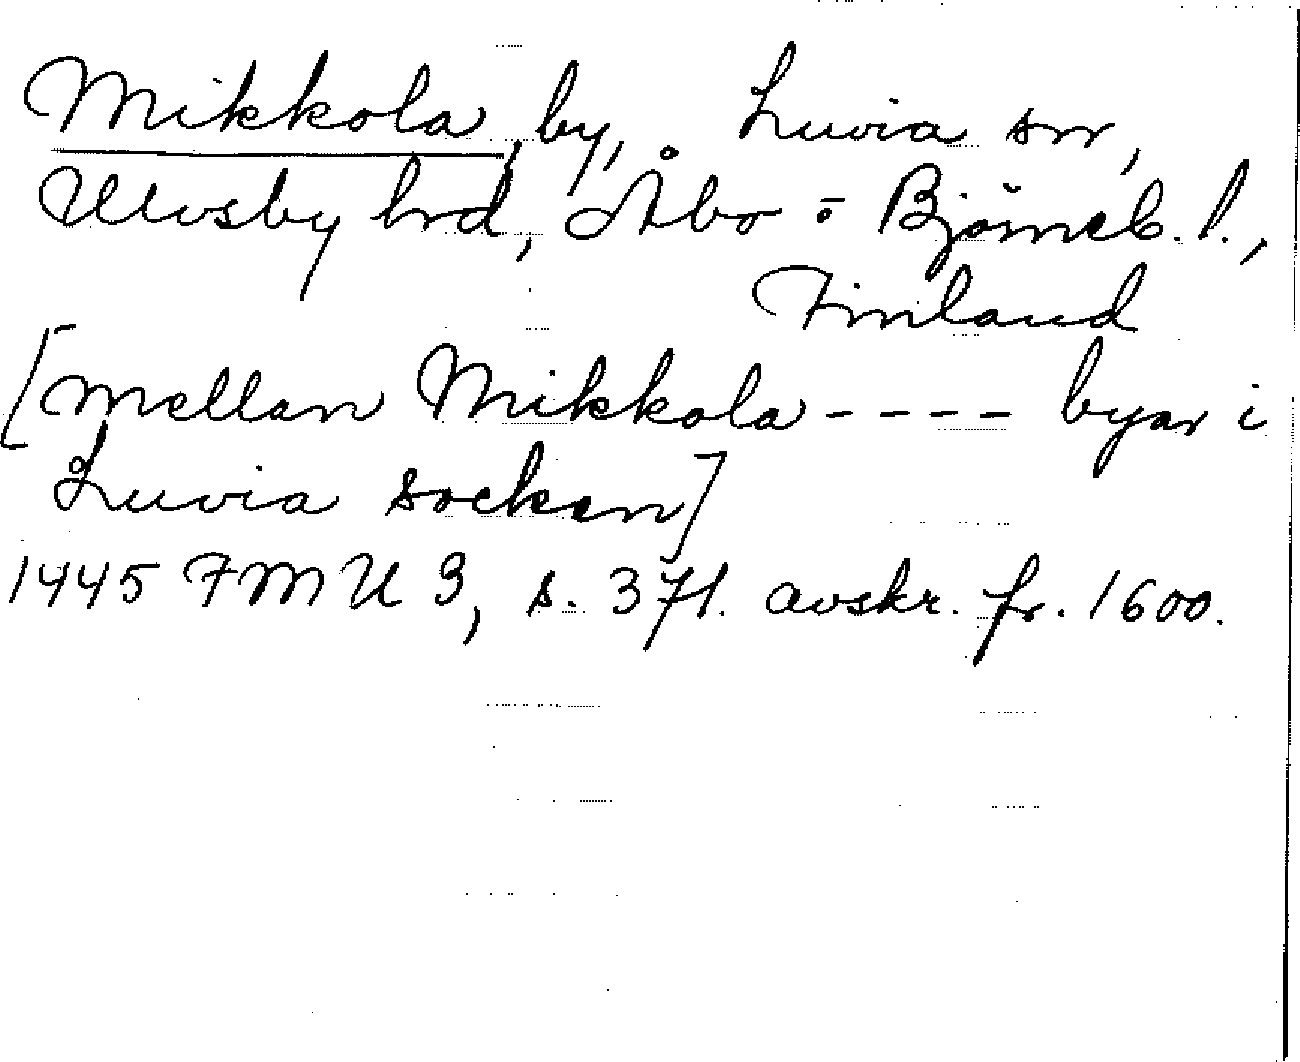 Mikkola, by, Luvia sn,
Ulvsby hrd, Åbo o Björneb. l.,
Finland
[mellan Mikkola - - - - byar i
Luvia socken]
1445 FMU 3, s. 371. avskr. fr. 1600.